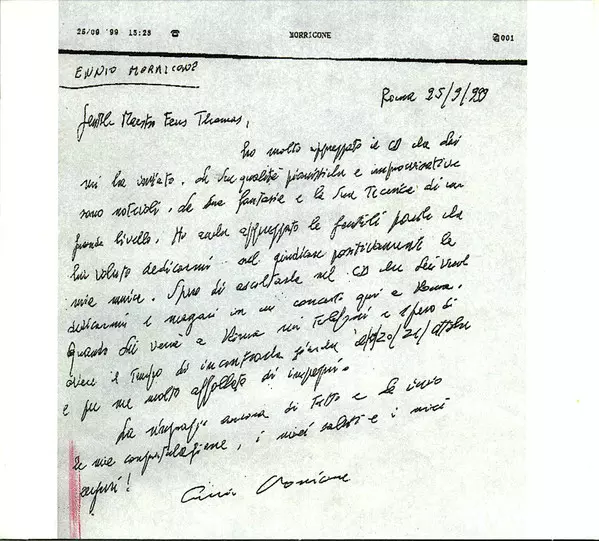 25/09 '99 15:25 ☎ MORRICONE 001
ENNIO MORRICONE
Roma 25/9/999
Gentile Maestro Enus Thomas,
ho molto apprezzato il CD che Lei
mi ha inviato. Le Sue qualità pianistiche e improvvisative
sono notevoli, la Sua fantasia e la Sua Tecnica di un
grande livello. Ho anche apprezzato le gentili parole che
ha voluto dedicarmi nel giudicare positivamente la
mia musica. Spero di ascoltarla nel CD che Lei vuol
dedicarmi e magari in un concerto qui a Roma.
Quando Lei verrà a Roma mi Telefoni e spero di
avere il Tempo di incontrarla 20/21/ ottobre
è per me molto affollato di impegni.
La ringrazio ancora di Tutto e Le invio
le mie congratulazioni, i miei saluti e i miei
auguri!
Ennio Morricone